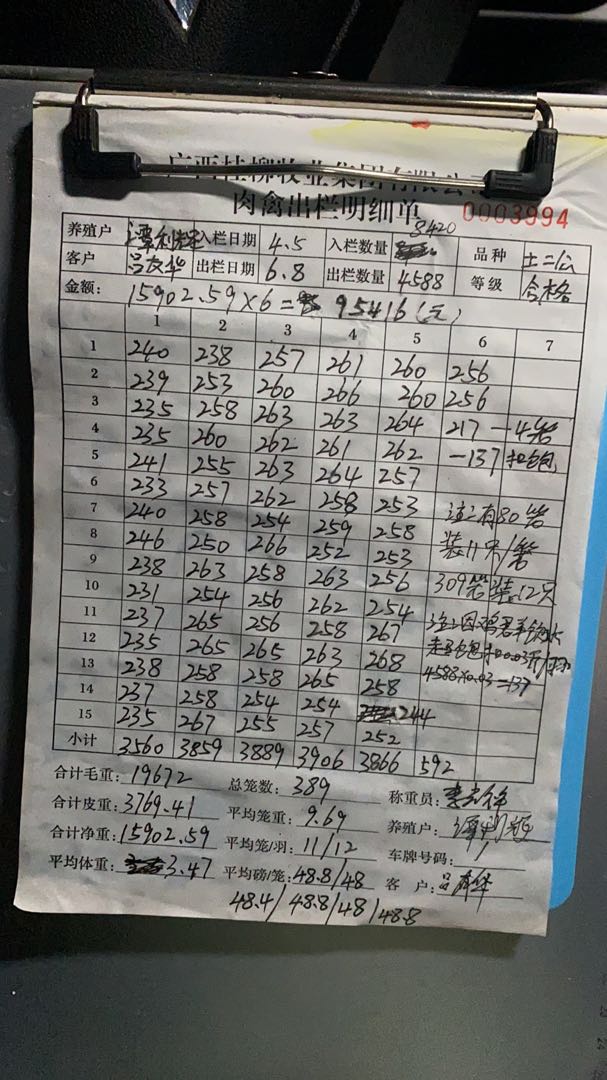 广西桂柳牧业集团有限公司
肉禽出栏明细单 0003994
养殖户 入栏日期 4.5 入栏数量 8420 品种 土二公
客户 吕友华 出栏日期 6.8 出栏数量 4588 等级 合格
金额: 15902.59×6= 95416(元)
1 2 3 4 5 6 7
1 240 238 257 261 260 256
2 239 253 260 266 260 256
3 235 258 263 263 264 217 —4笼
4 235 260 262 261 262 —137 扣
5 241 255 263 264 257
6 233 257 262 258 253
7 240 258 254 259 258 注:有80笼
8 246 250 266 252 253 装11只/笼
9 238 263 258 263 256 309笼装12只
10 231 254 256 262 254
11 237 265 256 258 267
12 235 265 265 263 268
13 238 258 258 265 258 4588×0.03=137
14 237 258 254 254 244
15 235 267 255 257 252
小计 3560 3859 3889 3906 3866 592
合计毛重: 19672 总笼数: 389 称重员:
合计皮重: 3769.41 平均笼重: 9.69 养殖户:
合计净重: 15902.59 平均笼/羽: 11/12 车牌号码: /
平均体重: 3.47 平均磅/笼: 48.8/48 客户: 吕友华
48.4/48.8/48/48.8